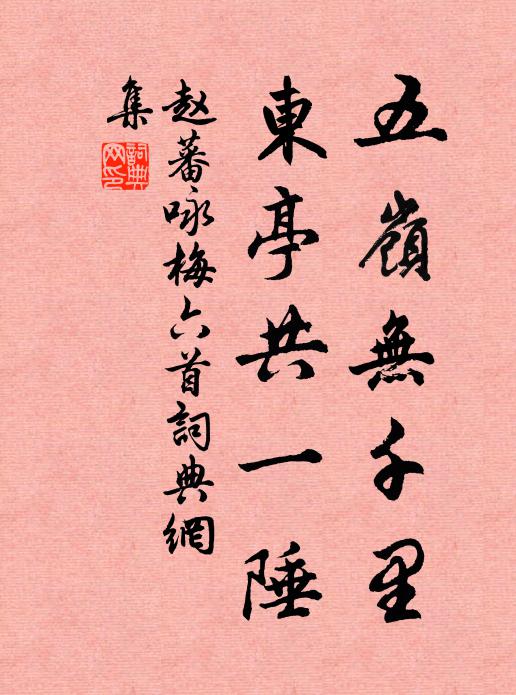 五嶺無千里
東亭共一陲
赵蕃咏梅六首詞典網
集
詞典網印